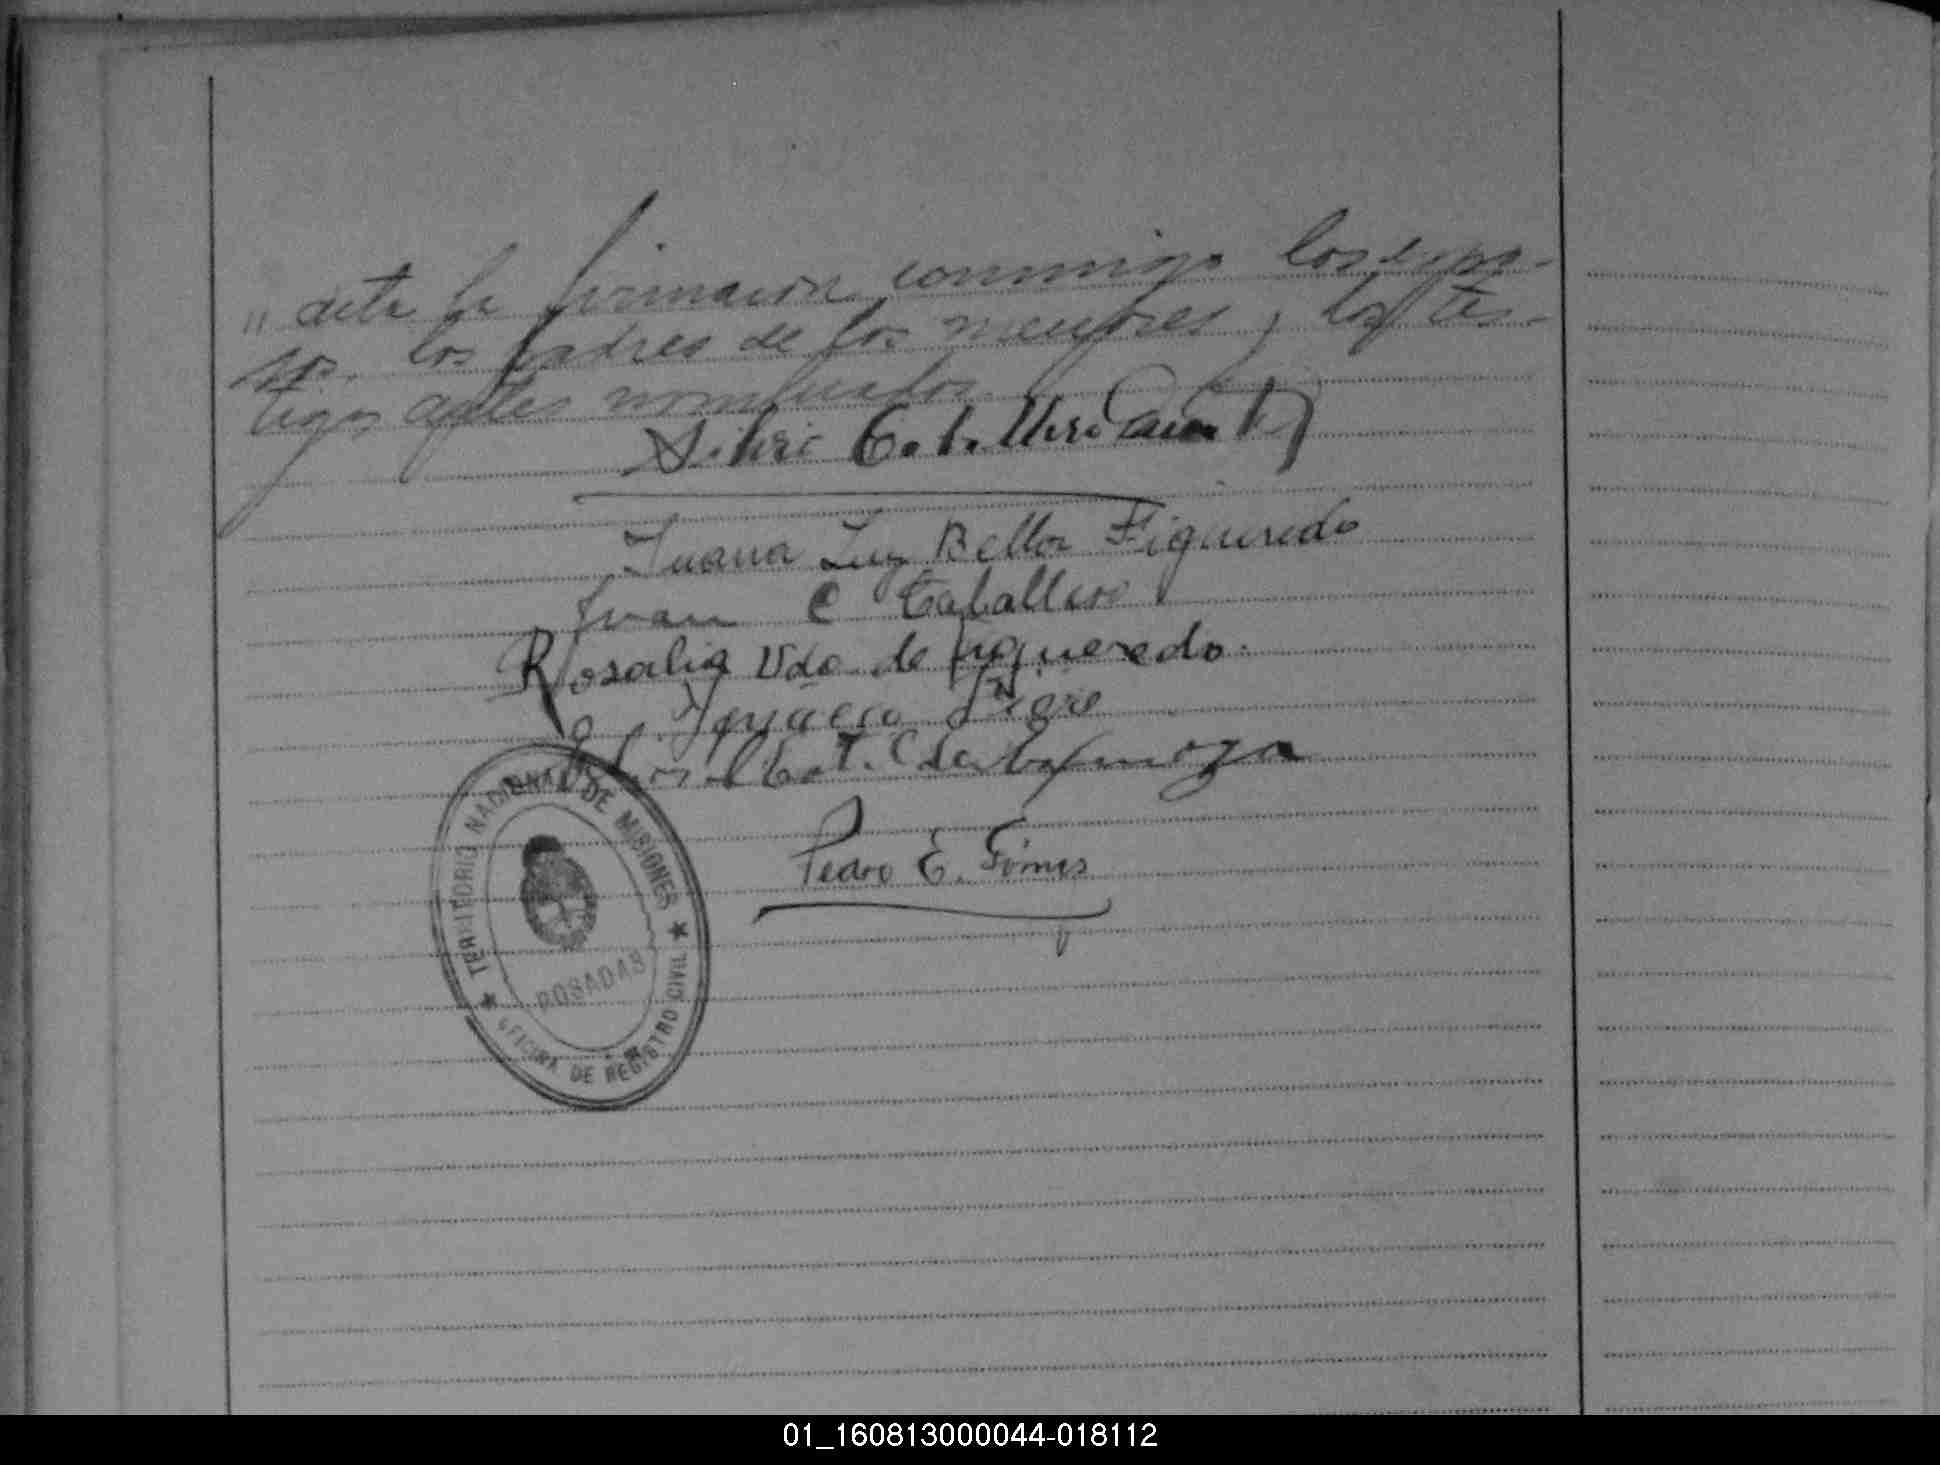 " acta la firmaron conmigo los espo-
sos. los padres de los menores y los tes-
tigos antes nombrados.
Silvio Caballero
Juana Luz Bella Figueredo
Juan C Caballero
Rosalia Vda de Figueredo.
Ignacio
Pedro E. Gómes
★ TERRITORIO NACIONAL DE MISIONES ★
POSADAS
OFICINA DE REGISTRO CIVIL
01_160813000044-018112